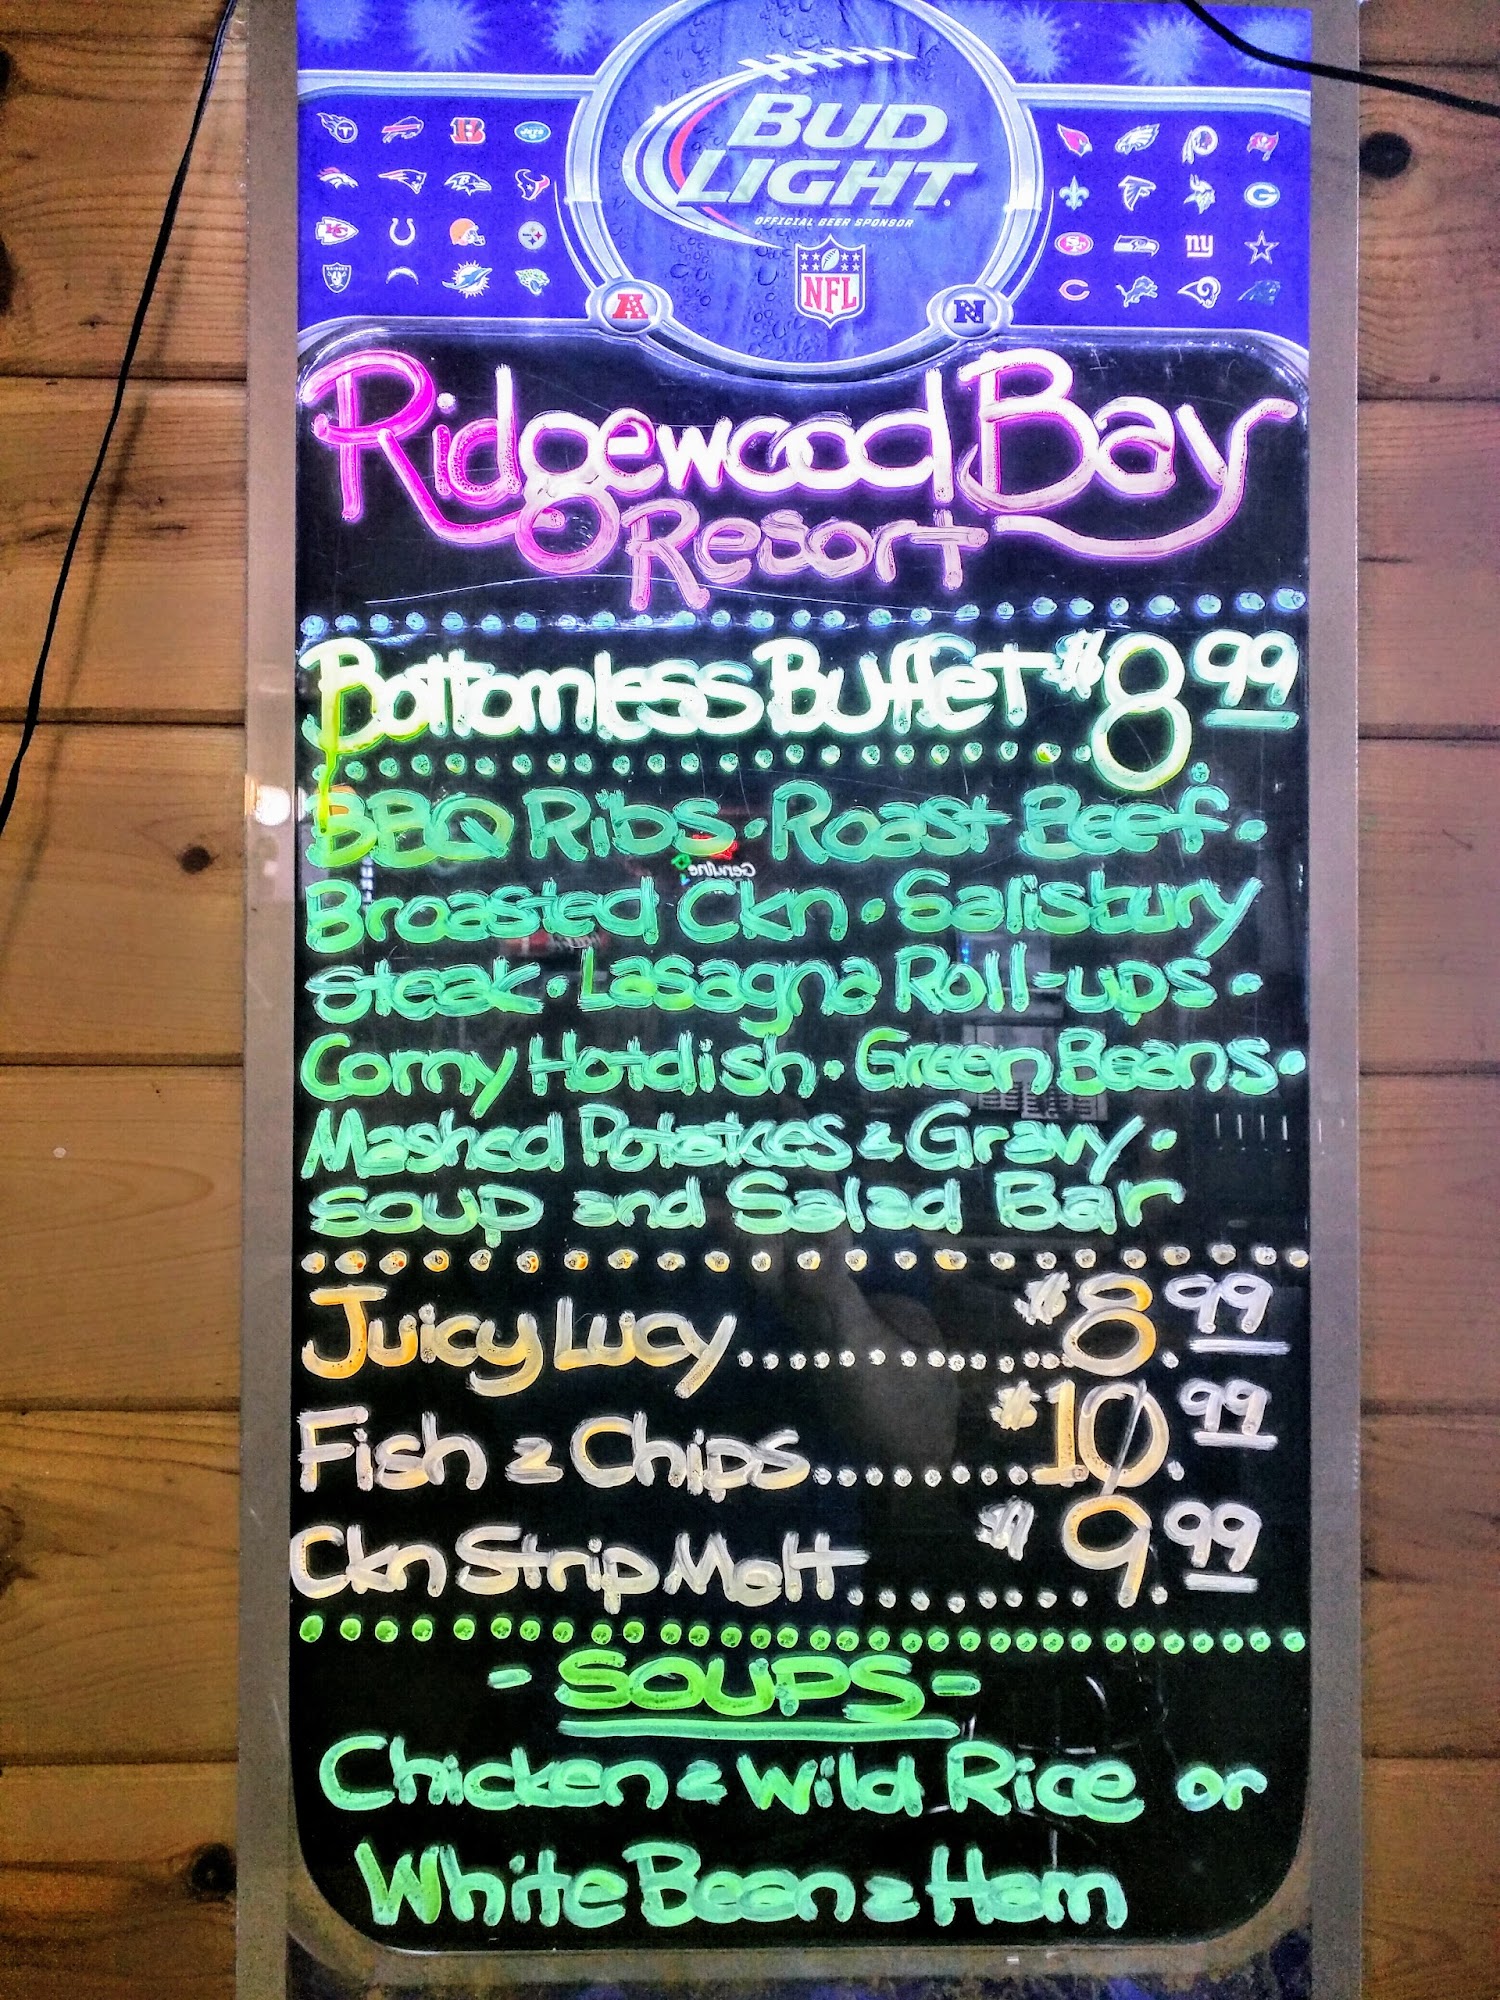 BUD
LIGHT
OFFICIAL BEER SPONSOR
NFL
A N
Ridgewood Bay
Resort
Bottomless Buffet $8.99
BBQ Ribs · Roast Beef ·
Broasted Ckn · Salisbury
Steak · Lasagna Roll-ups ·
Corny Hotdish · Green Beans ·
Mashed Potatoes & Gravy ·
Soup and Salad Bar
Juicy Lucy..............$8.99
Fish & Chips..........$10.99
Ckn Strip Melt.........$9.99
- SOUPS -
Chicken & Wild Rice or
White Bean & Ham